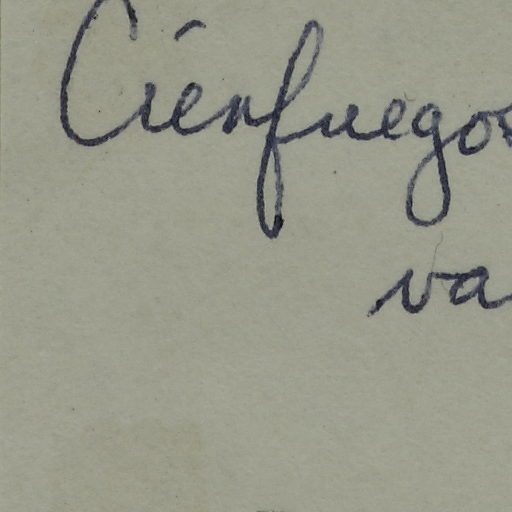 Cienfuegos
va